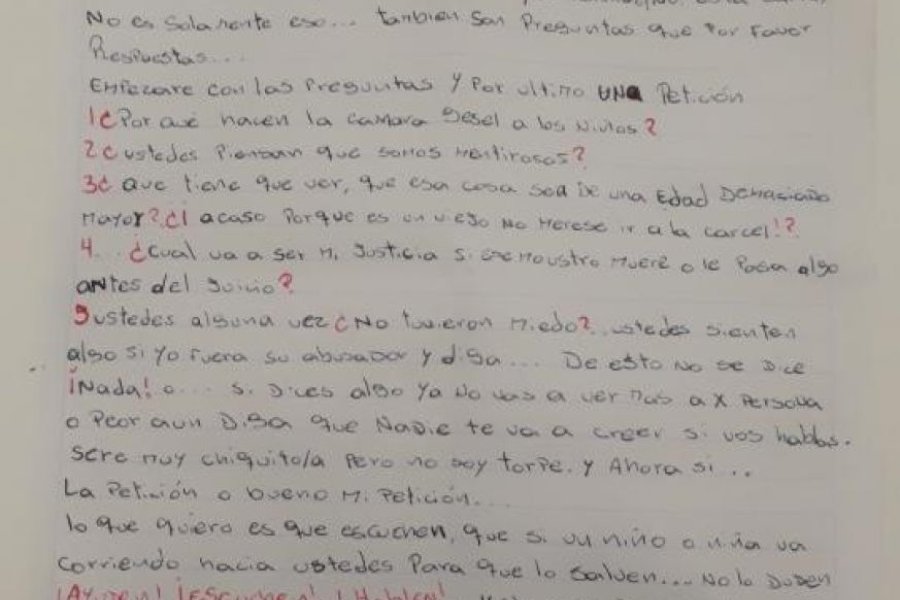 No es solamente eso... tambien son Preguntas que por favor
Respuestas...
Empezare con las Preguntas y Por ultimo UNA Petición
1¿Por qué hacen la camara Gesel a los Niños?
2¿ustedes Piensan que somos mentirosos?
3¿ que tiene que ver, que esa cosa sea De una EDAD DEMASIADO
Mayor? ¿I acaso Porque es un viejo No Merese ir a la carcel!?
4... ¿Cual va a ser Mi Justicia si ese Moustro Muere o le Pasa algo
antes del Juicio?
5ustedes alguna vez ¿No tuvieron Miedo?.. ustedes sienten
algo si Yo fuera su abusador y diga... De esto No se Dice
¡Nada! o... si Dices algo Ya No vas a ver Mas a X Persona
o Peor aun Diga que Nadie te va a creer si vos hablas.
Sere muy chiquito/a Pero no soy torpe. y Ahora si...
La Petición o bueno Mi Petición...
lo que quiero es que escuchen, que si un niño o niña va
corriendo hacia ustedes Para que lo salven... No lo Duden
¡Ayuden! ¡Escuchen! ¡Hablen!